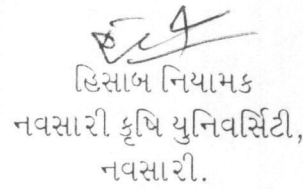 હિસાબ નિયામક
નવસારી કૃષિ યુનિવર્સિટી,
નવસારી.